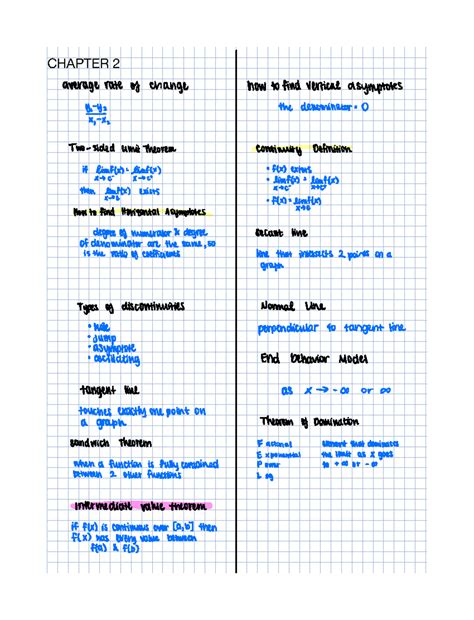 CHAPTER 2
average rate of change
y₁-y₂
x₁-x₂
Two-sided Limit Theorem
if lim f(x) = lim f(x)
x→c⁻ x→c⁺
then lim f(x) exists
How to find Horizontal Asymptotes
degree of numerator & degree
of denominator are the same, so
is the ratio of coefficients
Types of discontinuities
• hole
• jump
• asymptote
• oscillating
tangent line
touches exactly one point on
a graph
Sandwich Theorem
when a function is fully contained
between 2 other functions
Intermediate value theorem
if f(x) is continuous over [a,b] then
f(x) has every value between
f(a) & f(b)
how to find vertical asymptotes
the denominator = 0
Continuity Definition
• f(x) exists
• lim f(x) = lim f(x)
x→c⁻ x→c⁺
• f(x) = lim f(x)
secant line
line that intersects 2 points on a
graph
Normal Line
perpendicular to tangent line
End Behavior Model
as x → -∞ or ∞
Theorem of Domination
Factorial element that dominates
Exponential the limit as x goes
Power to +∞ or -∞
Log